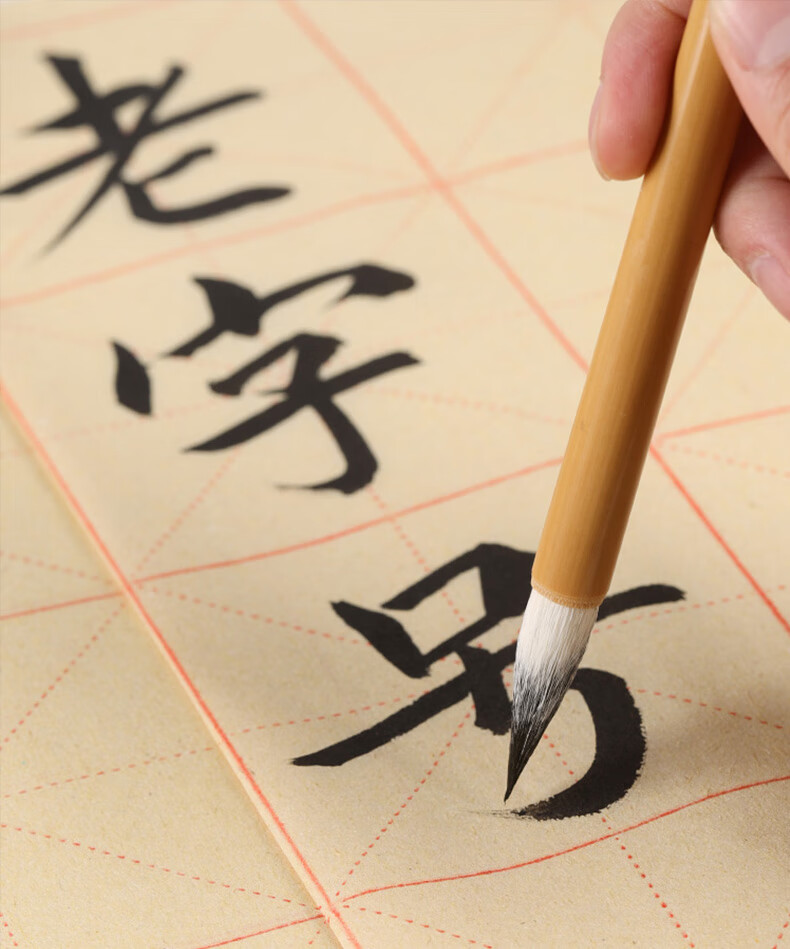 老字号